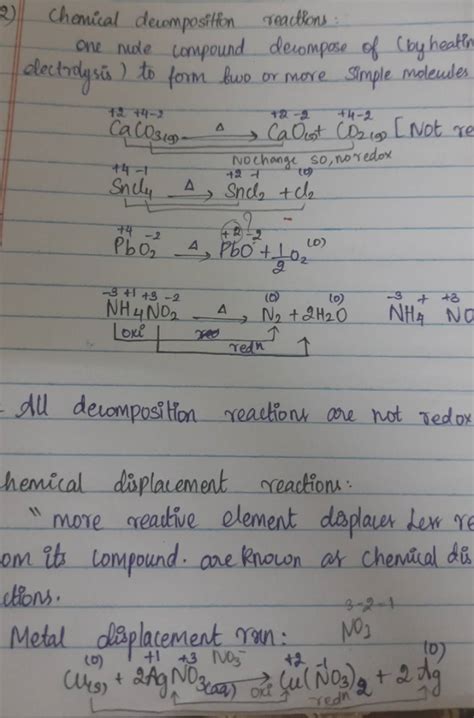 2) Chemical decomposition reactions:
one mole compound decompose of (by heatin
electrolysis) to form two or more simple molecules
+2 +4 -2 +2 -2 +4 -2
CaCO3(s) Δ→ CaO(s)+ CO2(g) [Not re
No change so, no redox
+4 -1 +2 -1 (0)
SnCl4 Δ→ SnCl2 + Cl2
? -
+4 -2 +2 -2 (0)
PbO2 Δ→ PbO + 1/2 O2
-3 +1 +3 -2 (0) (0) -3 + +3
NH4NO2 Δ→ N2 + 2H2O NH4 NO
oxi redn
- All decomposition reactions are not redox
hemical displacement reactions:
" more reactive element displaces less re
om its compound. are known as chemical dis
ctions.
3-2-1
Metal displacement rxn: NO3
(0) +1 +3 NO3- +2 -1 (0)
Cu(s) + 2AgNO3(aq) → Cu(NO3)2 + 2Ag
oxi redn